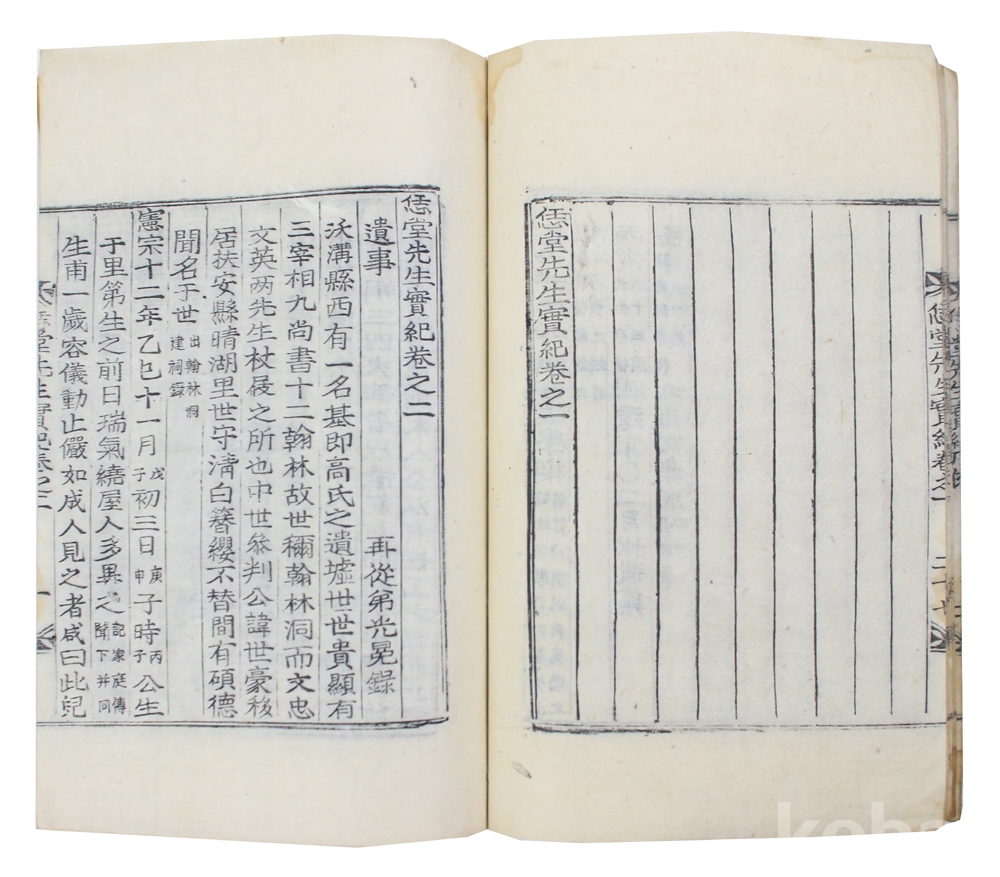 恁堂先生實紀卷之一
恁堂先生實紀卷之一
恁堂先生實紀卷之二
遺事 再從弟光冕錄
沃溝縣西有一名基即高氏之遺墟世世貴顯有
三宰相九尚書十二翰林故世稱翰林洞而文忠
文英两先生杖屨之所也中世叅判公諱世豪移
居扶安縣晴湖里世守清白簪纓不替間有碩德
聞名于世 出翰林洞建祠錄
憲宗十二年乙巳十一月戊子初三日庚申子時丙子公生
于里第生之前日瑞氣繞屋人多異之記家庭傳聞下并同
生甫一歲容儀動止儼如成人見之者咸曰此兒
堂先生實紀卷之二 一